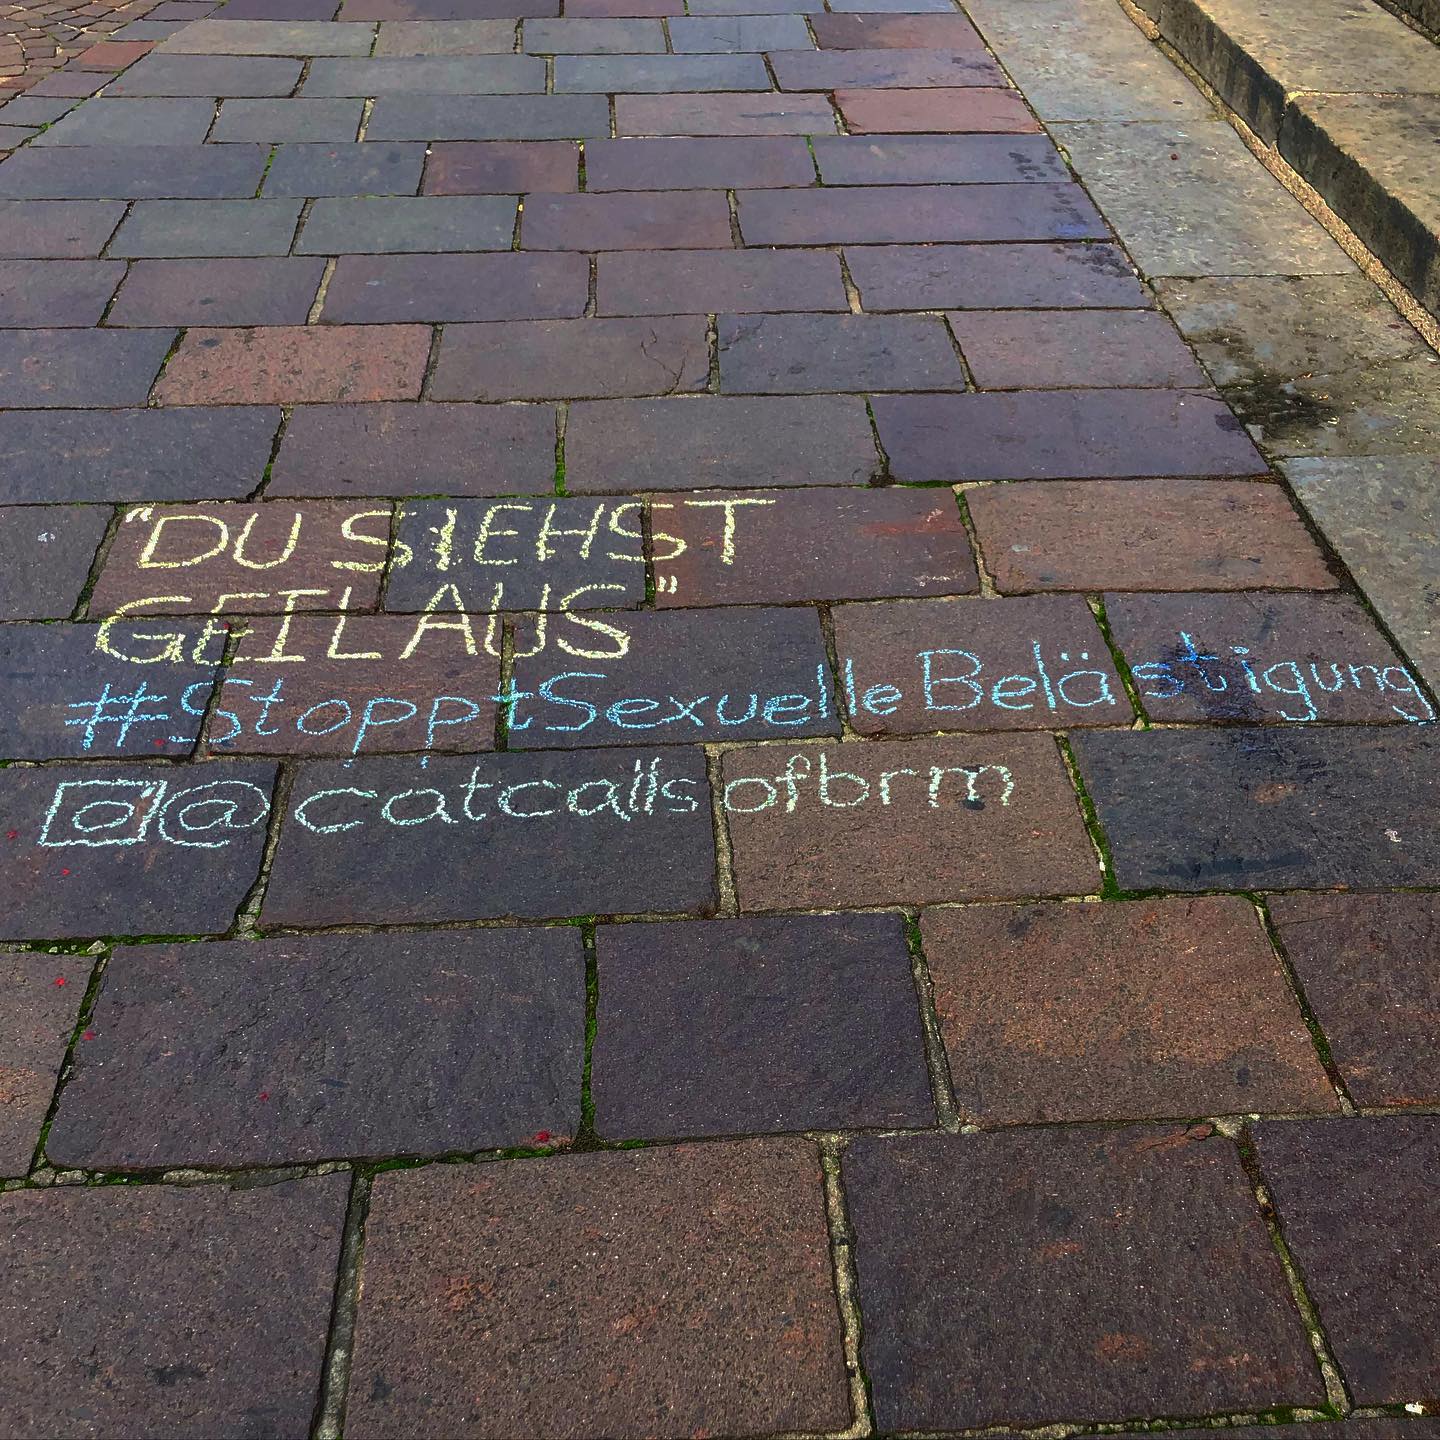 "DU SIEHST
GEIL AUS"
#StopptSexuelle Belästigung
@catcallsofbrm